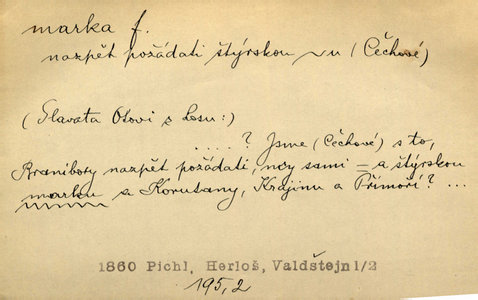 marka f.
nazpět požádati štýrskou ~u (Čechové)
(Slavata Otovi z Losu:)
....? Jsme (Čechové) s to,
Branibory nazpět požádati, nóż sami = a štýrskou
marku a Korutany, Krajinu a Přímoří? ...
1860 Pichl, Herloš, Valdštejn 1/2
195,2